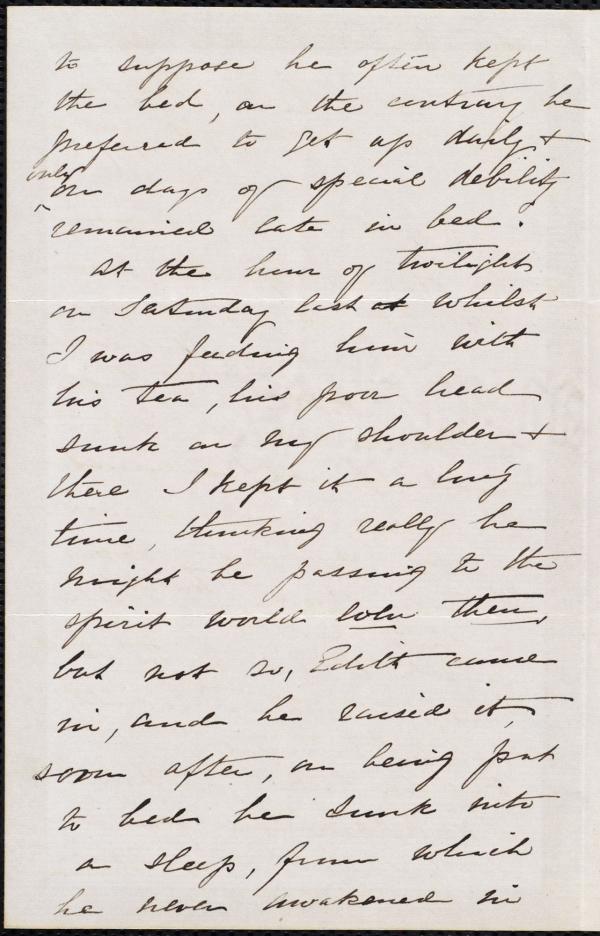 to suppose he often kept
the bed, on the contrary he
preferred to get up daily &
only
on days of special debility
remained late in bed.
At the hour of twilight
on Saturday last at whilst
I was feeding him with
his tea, his poor head
sunk on my shoulder &
there I kept it a long
time, thinking really he
might be passing to the
spirit world then,
but not so, Edith came
in, and he raised it,
soon after, on being put
to bed he sunk into
a sleep, from which
he never awakened in